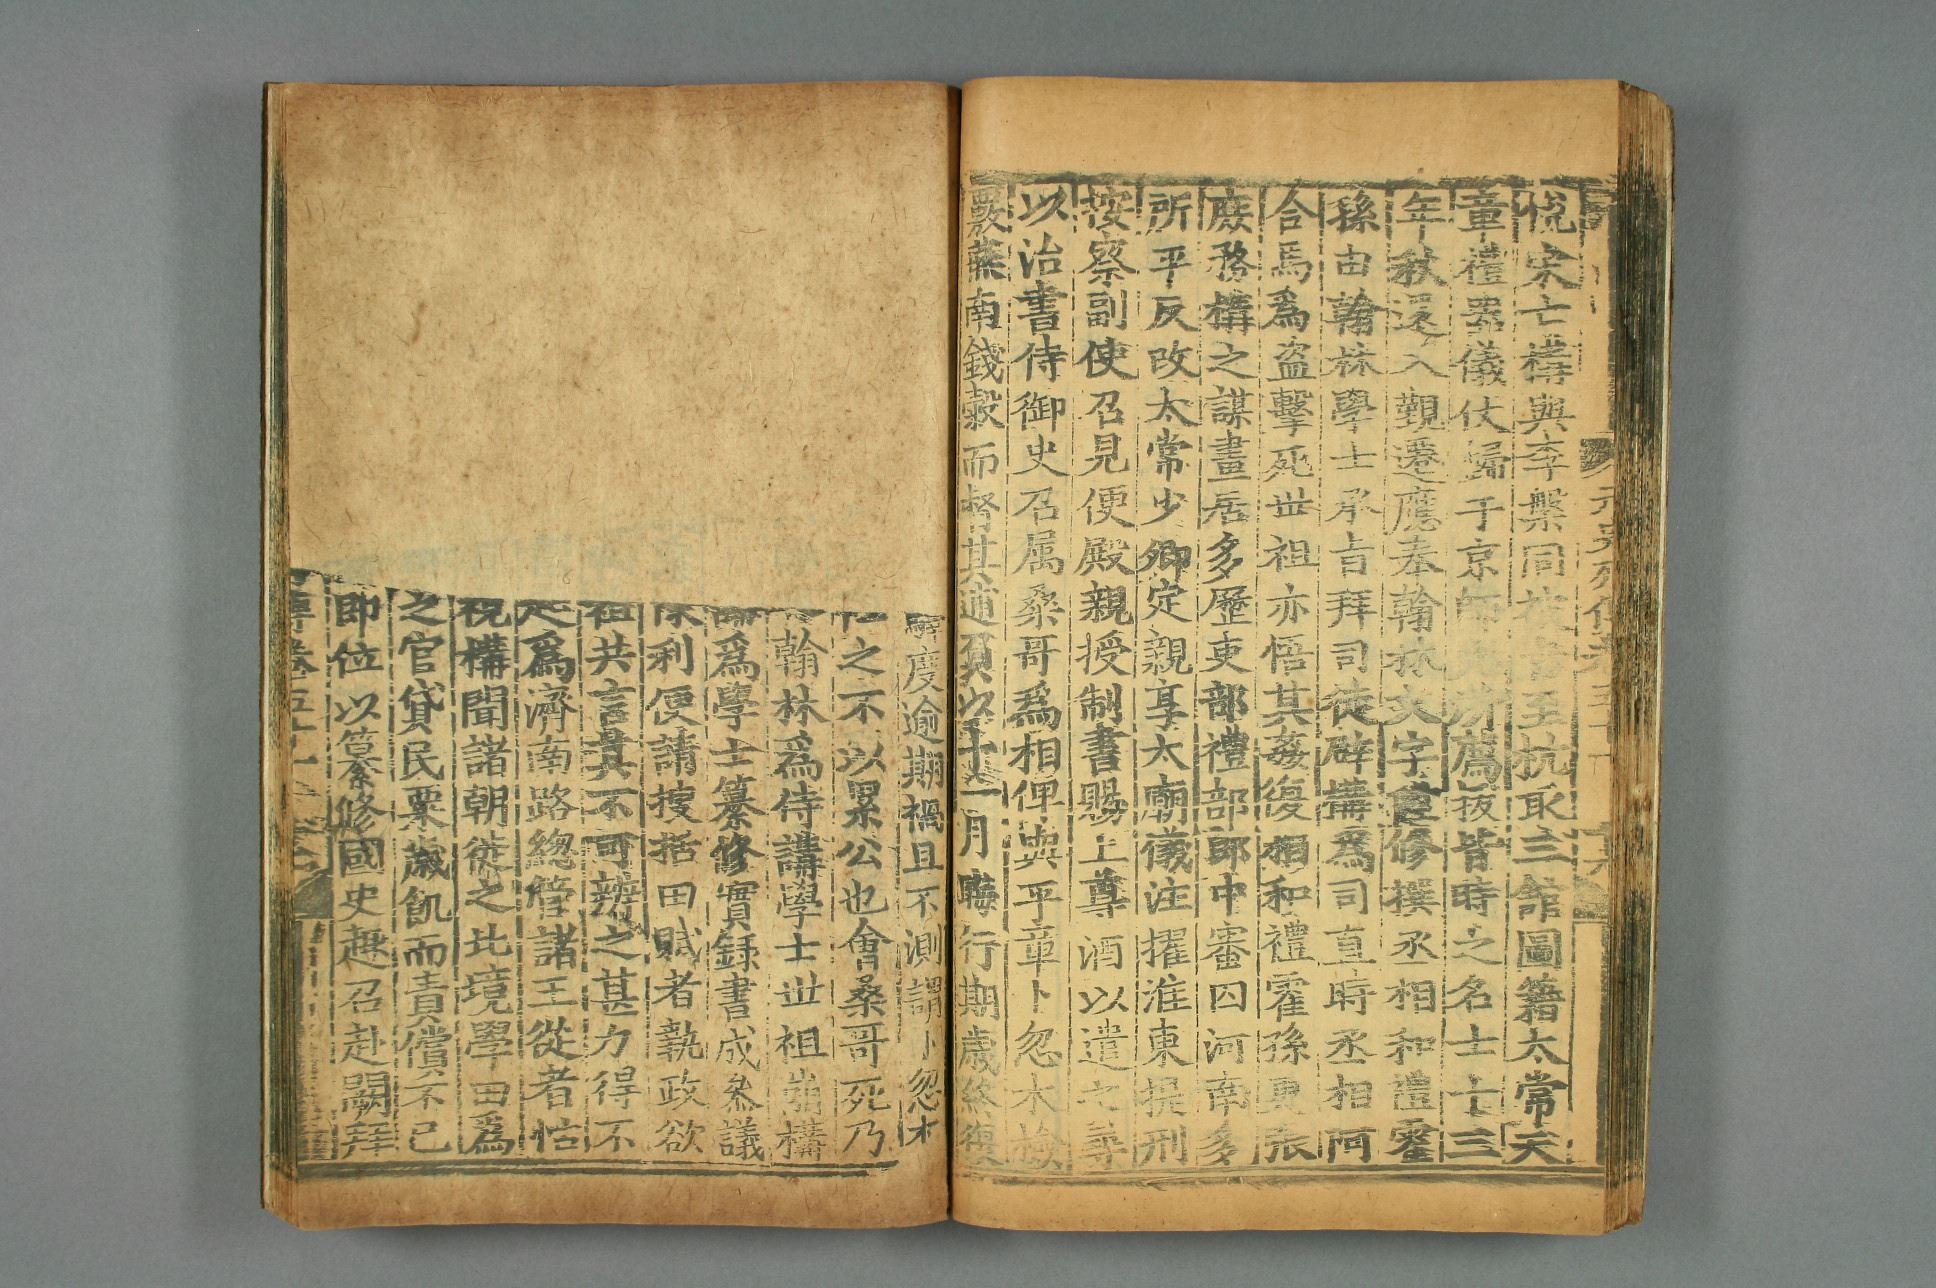 元史列傳卷五十一 十六
悅宋亡構與李槃同被旨至杭取三館圖籍太常天
章禮器儀仗歸于京師凡所薦拔皆時之名士士三
年秋還入覲遷應奉翰林文字陞修撰丞相和禮霍
孫由翰林學士承旨拜司徒辟構爲司直時丞相阿
合馬爲盗擊死世祖亦悟其姦復相和禮霍孫更張
庶務構之謀畫居多歷吏部禮部郎中審囚河南多
所平反改太常少卿定親享太廟儀注擢淮東提刑
按察副使召見便殿親授制書賜上尊酒以遣之尋
以治書侍御史召属桑哥爲相俾與平章卜忽木檢
覈燕南錢穀而督其逋負以十一月晦行期歲終復
度逾期禍且不測謂卜忽木
之不以累公也會桑哥死乃
翰林爲侍講學士世祖崩構
爲學士纂修實録書成叅議
利便請搜括田賦者執政欲
祖共言其不可辨之甚力得不
爲濟南路總管諸王從者怙
視構聞諸朝徙之北境學田爲
之官貸民粟歲飢而責償不已
即位以纂修國史趣召赴闕拜
傳卷五十一